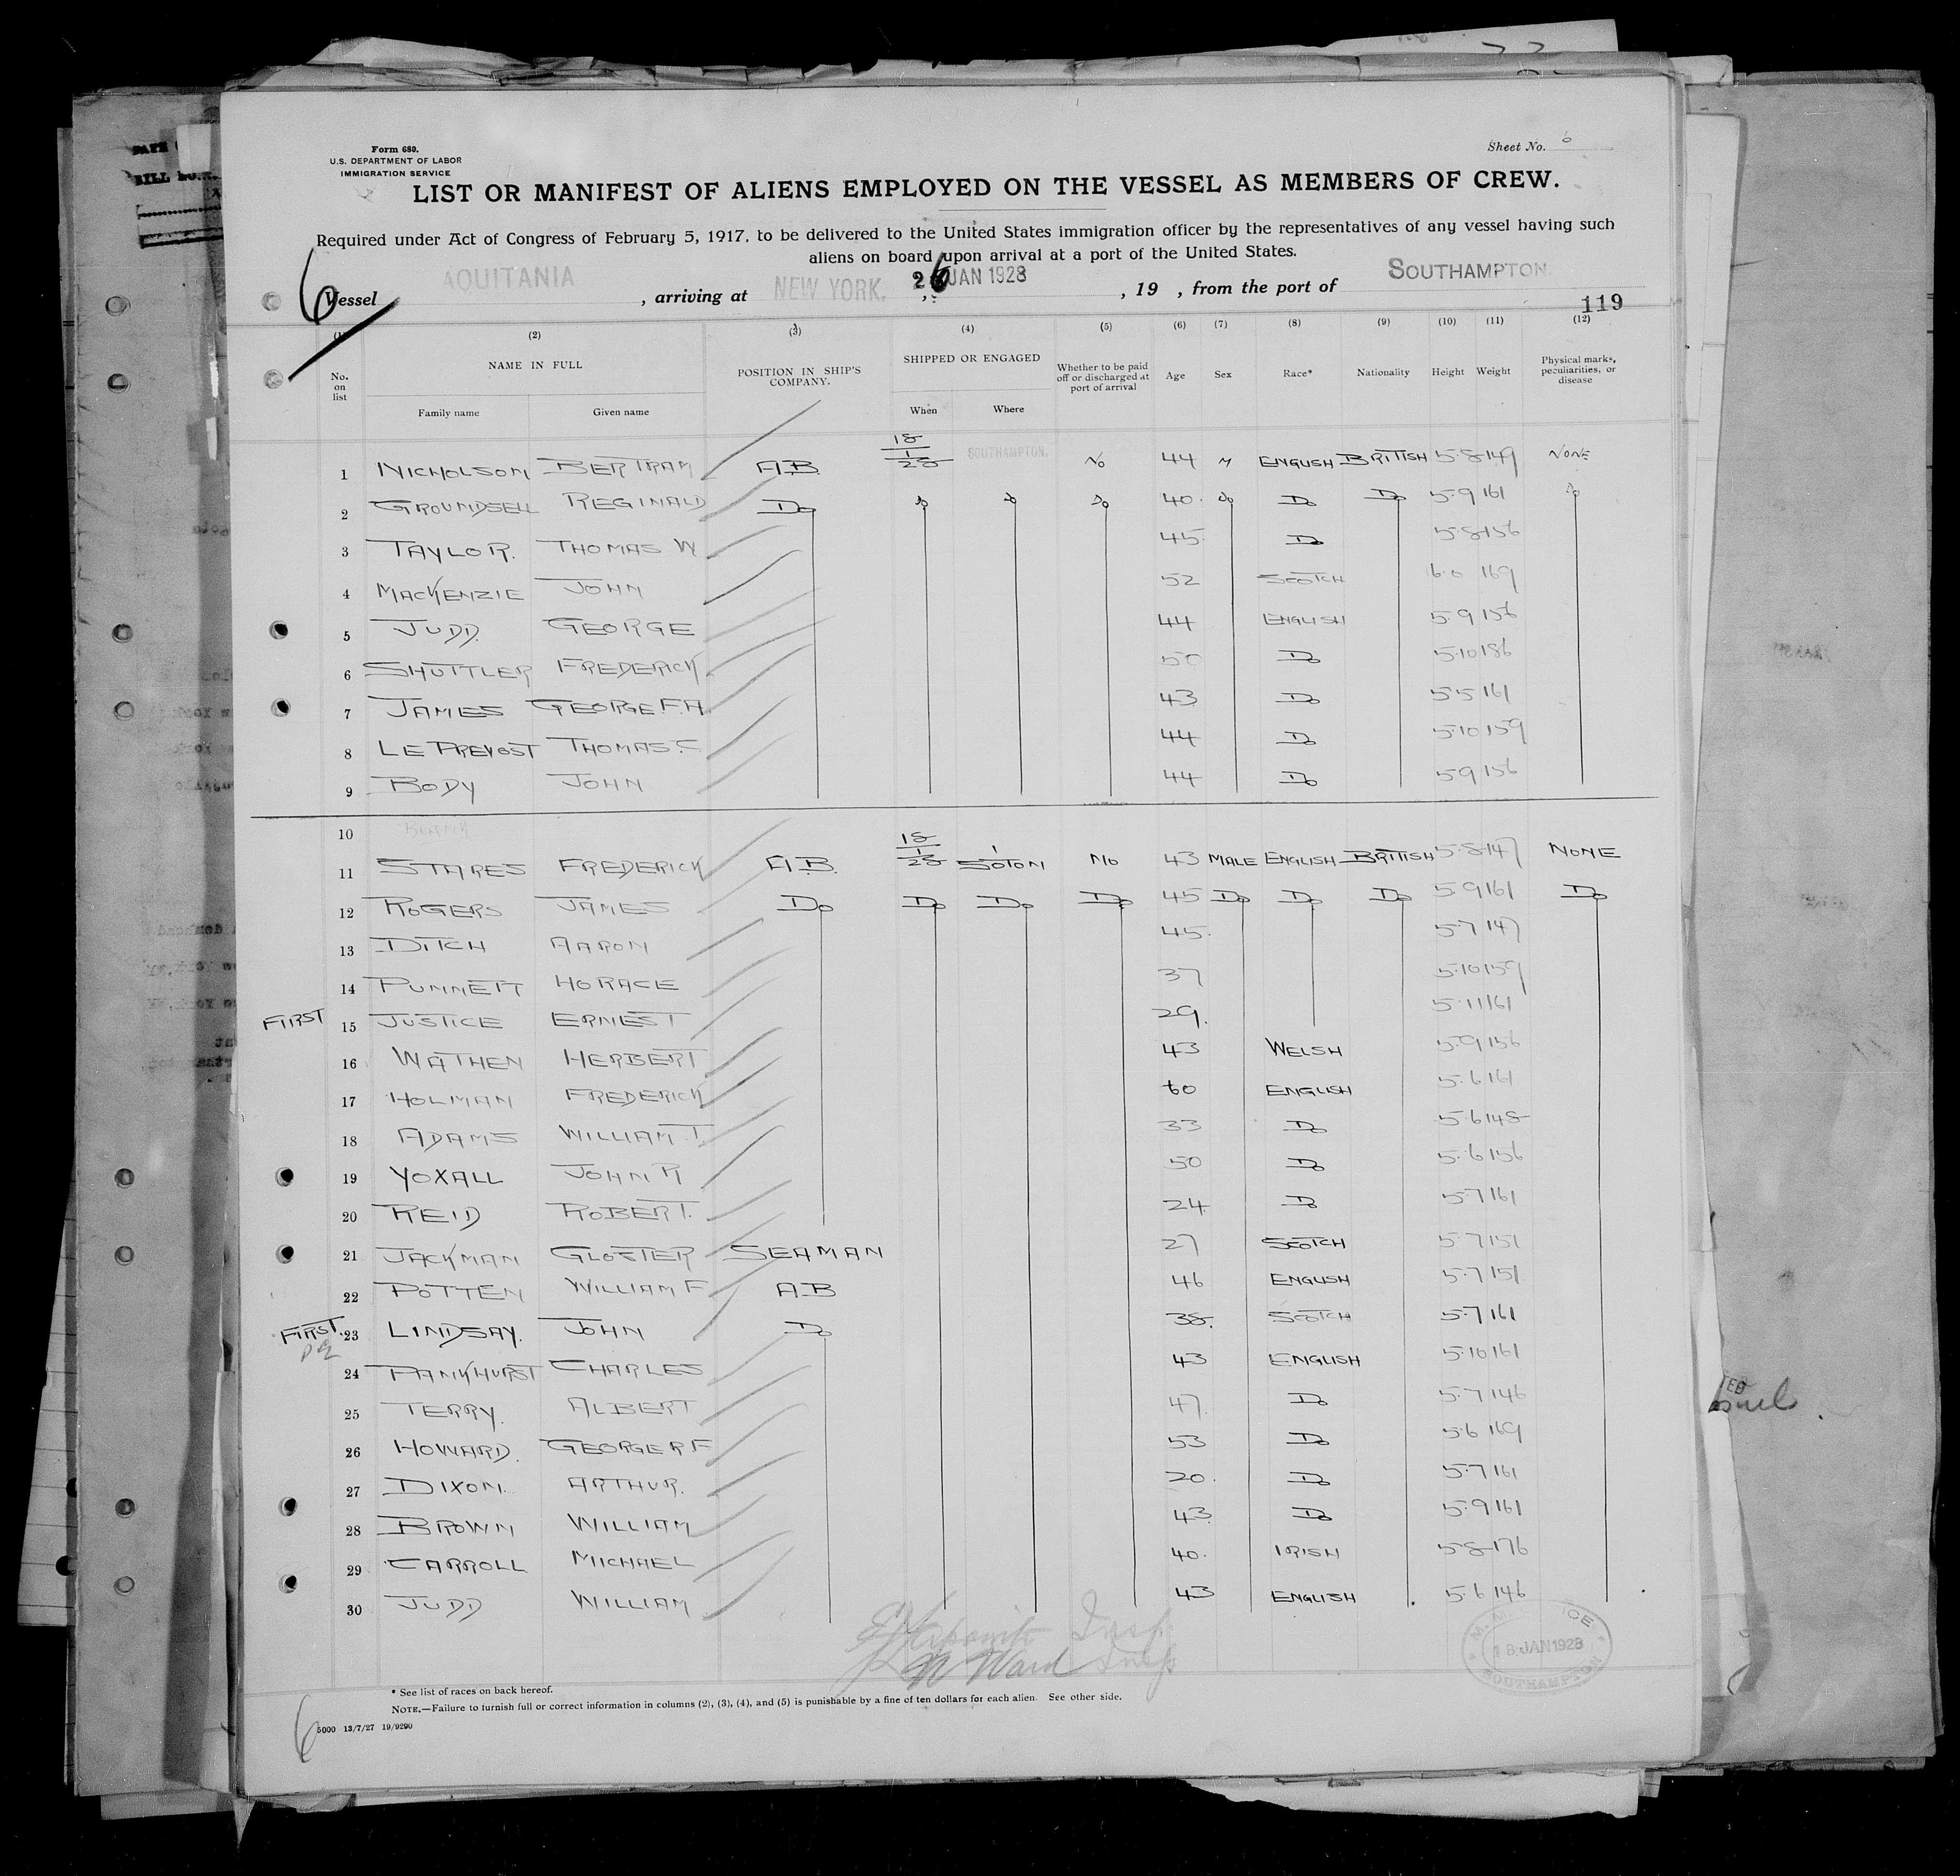 Form 680.
U.S. DEPARTMENT OF LABOR
IMMIGRATION SERVICE
Sheet No. 6
LIST OR MANIFEST OF ALIENS EMPLOYED ON THE VESSEL AS MEMBERS OF CREW.
Required under Act of Congress of February 5, 1917, to be delivered to the United States immigration officer by the representatives of any vessel having such
aliens on board upon arrival at a port of the United States.
6 Vessel AQUITANIA, arriving at NEW YORK., 26 JAN 1928, 19 , from the port of SOUTHAMPTON.
119
(1) (2) (3) (4) (5) (6) (7) (8) (9) (10) (11) (12)
No. on list NAME IN FULL POSITION IN SHIP'S COMPANY. SHIPPED OR ENGAGED Whether to be paid off or discharged at port of arrival Age Sex Race* Nationality Height Weight Physical marks, peculiarities, or disease
Family name Given name When Where
1 NICHOLSON BERTRAM A.B. 18/1/28 SOUTHAMPTON. No 44 M ENGLISH BRITISH 5.8 149 NONE
2 GROUNDSELL REGINALD Do Do Do Do 40. Do Do Do 5.9 161 Do
3 TAYLOR. THOMAS W 45. Do 5.8 156
4 MACKENZIE JOHN 52 SCOTCH 6.0 169
5 JUDD. GEORGE 44 ENGLISH 5.9 156
6 SHUTTLER FREDERICK 50 Do 5.10 186
7 JAMES GEORGE F.A. 43 Do 5.5 161
8 LE PREVOST THOMAS. 44 Do 5.10 159
9 BODY JOHN 44 Do 5.9 156
10
11 STARES FREDERICK A.B. 18/1/28 SOTON NO 43 MALE ENGLISH BRITISH 5.8 147 NONE
12 ROGERS JAMES Do Do Do Do 45 Do Do Do 5.9 161 Do
13 DITCH AARON 45. 5.7 147
14 PUNNETT HORACE 37 5.10 159
FIRST 15 JUSTICE ERNEST 29. 5.11 161
16 WATHEN HERBERT 43 WELSH 5.9 156
17 HOLMAN FREDERICK 60 ENGLISH 5.6 161
18 ADAMS WILLIAM T. 33 Do 5.6 148
19 YOXALL JOHN R 50 Do 5.6 156
20 REID ROBERT. 24 Do 5.7 161
21 JACKMAN GLOSTER SEAMAN 27 SCOTCH 5.7 151
22 POTTEN WILLIAM F A.B 46 ENGLISH 5.7 151
FIRST. 23 LINDSAY. JOHN Do 38. SCOTCH 5.7 161
24 PANKHURST CHARLES 43 ENGLISH 5.10 161
25 TERRY. ALBERT 47. Do 5.7 146
26 HOWARD. GEORGE R F 53 Do 5.6 169
27 DIXON. ARTHUR. 20. Do 5.7 161
28 BROWN WILLIAM 43. Do 5.9 161
29 CARROLL MICHAEL 40. IRISH 5.8 176
30 JUDD WILLIAM 43 ENGLISH 5.6 146
Insp.
Ward Insp
18 JAN 1928
SOUTHAMPTON
* See list of races on back hereof.
NOTE.—Failure to furnish full or correct information in columns (2), (3), (4), and (5) is punishable by a fine of ten dollars for each alien. See other side.
6
5000 13/7/27 19/9290